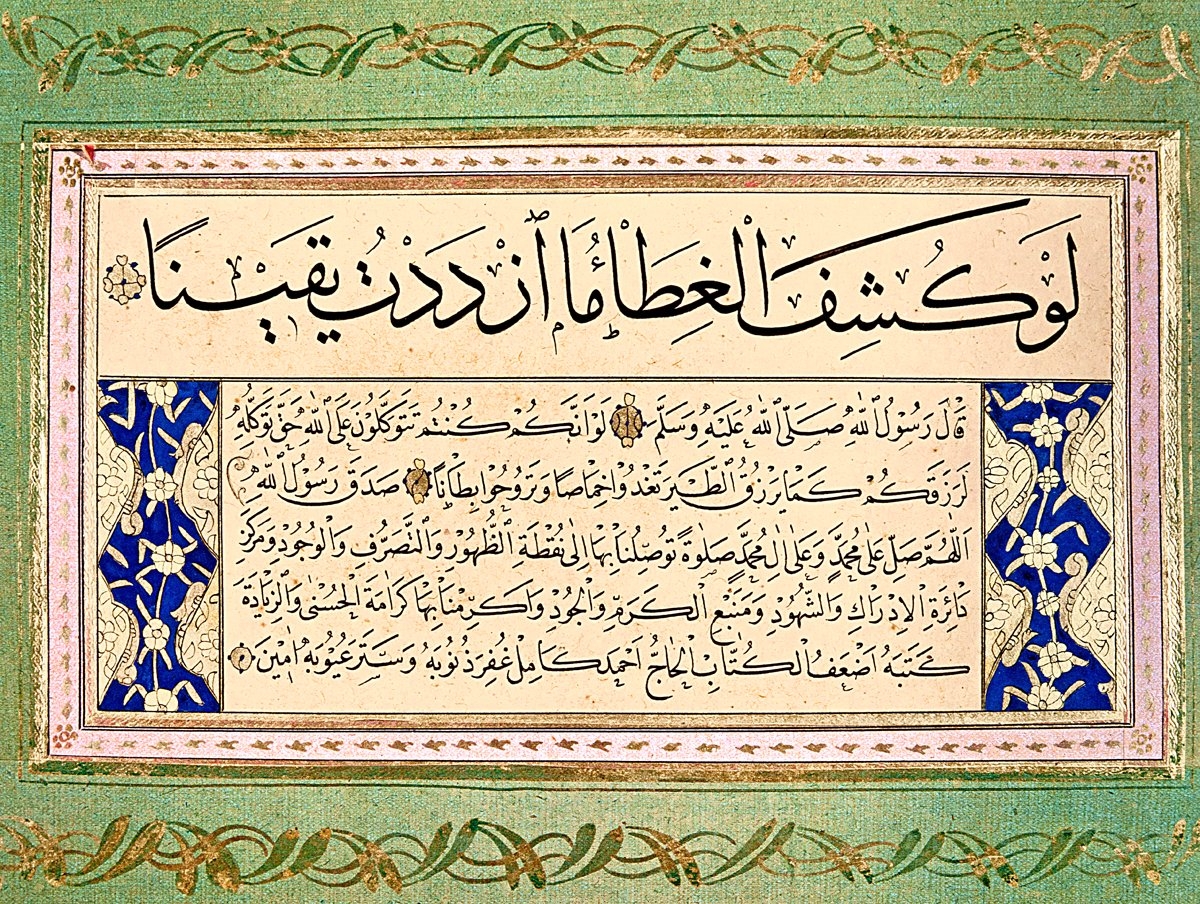 لَوْ كُشِفَ الْغِطَاءُ مَا ازْدَدْتُ يَقِيْنًا
قَالَ رَسُوْلُ اللّٰهِ صَلَّى اللّٰهُ عَلَيْهِ وَسَلَّمَ لَوْ اَنَّكُمْ كُنْتُمْ تَتَوَكَّلُوْنَ عَلَى اللّٰهِ حَقَّ تَوَكُّلِهِ
لَرَزَقَكُمْ كَمَا يَرْزُقُ الطَّيْرَ تَغْدُوْا خِمَاصًا وَتَرُوْحُوا بِطَانًا صَدَقَ رَسُوْلُ اللّٰهِ
اَللّٰهُمَّ صَلِّ عَلٰى مُحَمَّدٍ وَعَلٰى اٰلِ مُحَمَّدٍ صَلٰوةً تُوَصِّلُنَا بِهَا اِلٰى نُقْطَةِ الظُّهُوْرِ وَالتَّصَرُّفِ وَالْوُجُوْدِ وَمَرْكَزِ
دَائِرَةِ الْاِدْرَاكِ وَالشُّهُوْدِ وَمَنْبَعِ الْكَرَمِ وَالْجُوْدِ وَاَكْرِمْنَا بِهَا كَرَامَةَ الْحُسْنٰى وَالزِّيَادَةَ
كَتَبَهُ اَضْعَفُ الْكُتَّابِ الْحَاجُّ اَحْمَد كَامِلْ غُفِرَ ذُنُوْبَهُ وَسَتَرَ عُيُوْبَهُ اٰمِيْنَ